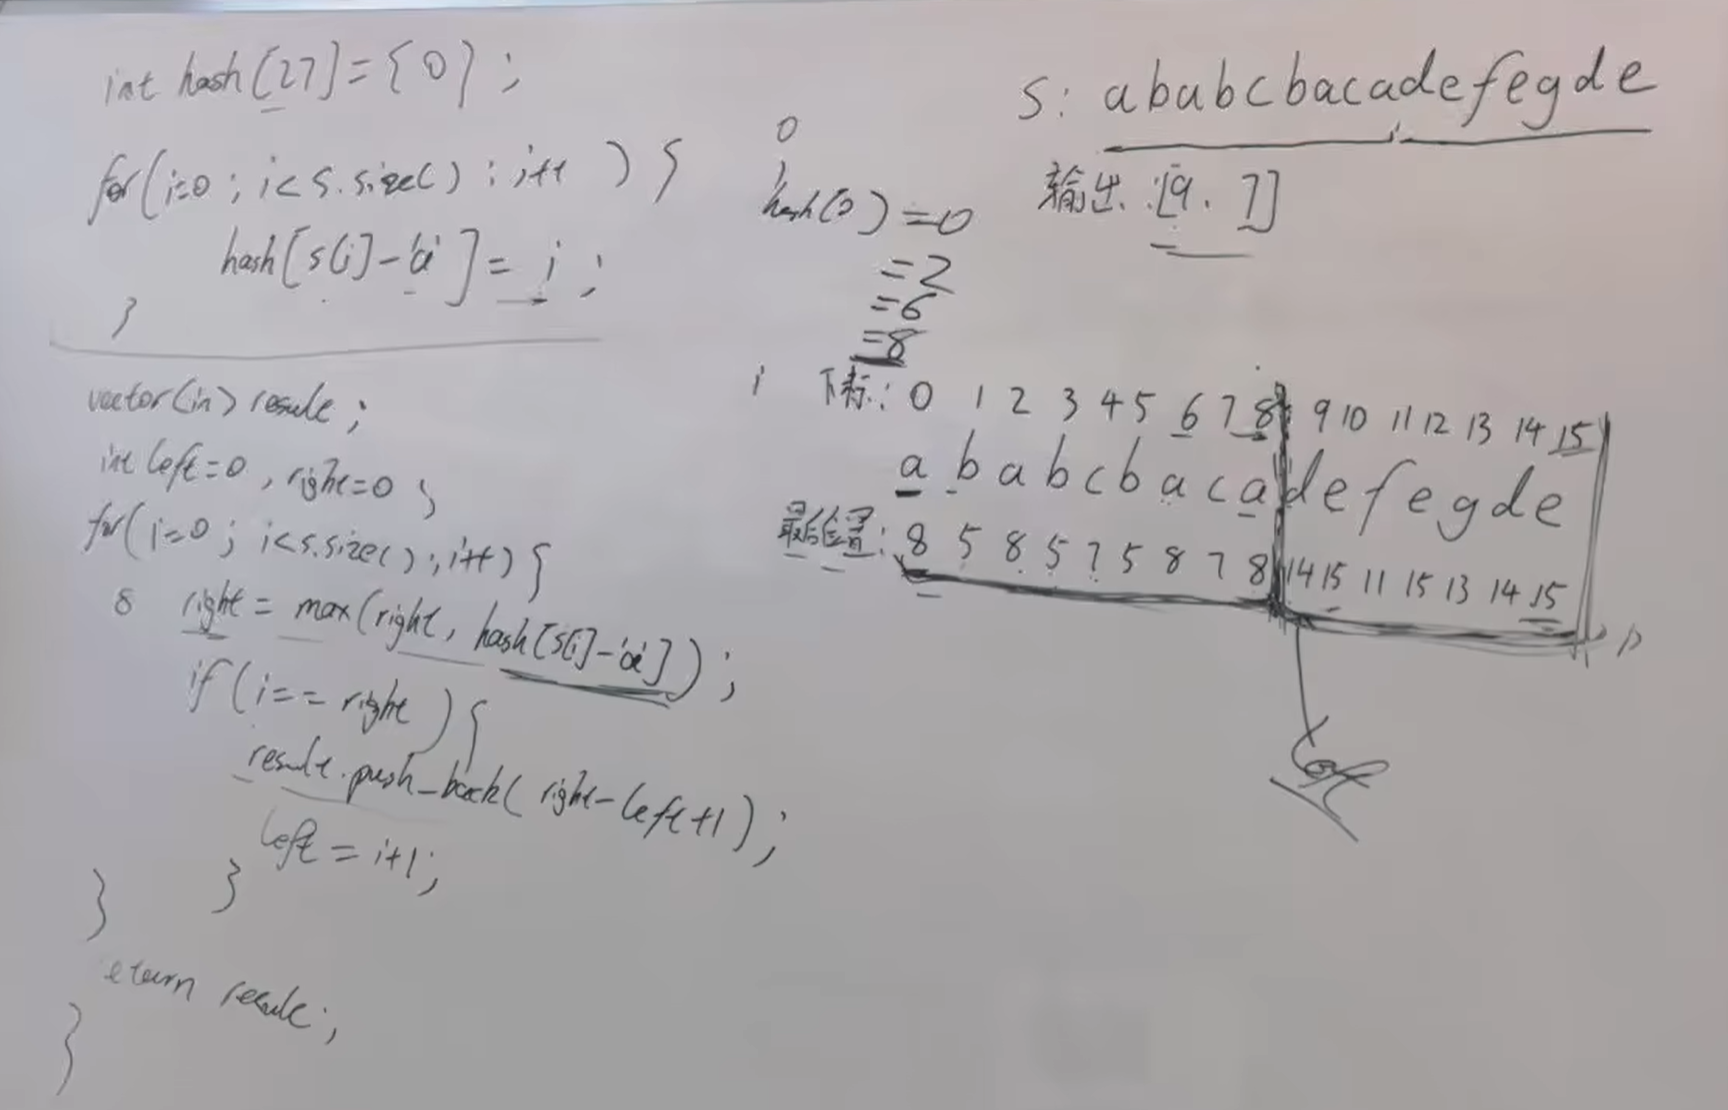 int hash[27]={0};
for(i=0; i<s.size(); i++){
hash[s[i]-'a']=i;
}
vector<in>result;
int left=0, right=0;
for(i=0; i<s.size(); i++){
8 right = max(right, hash[s[i]-'a']);
if(i==right){
result.push_back(right-left+1);
left=i+1;
}
}
eturn result;
}
0
hash(0)=0
=2
=6
=8
S: ababcbacadefegde
输出:[9,7]
i 下标: 0 1 2 3 4 5 6 7 8 9 10 11 12 13 14 15
a b a b c b a c a d e f e g d e
最后位置: 8 5 8 5 7 5 8 7 8 14 15 11 15 13 14 15
left